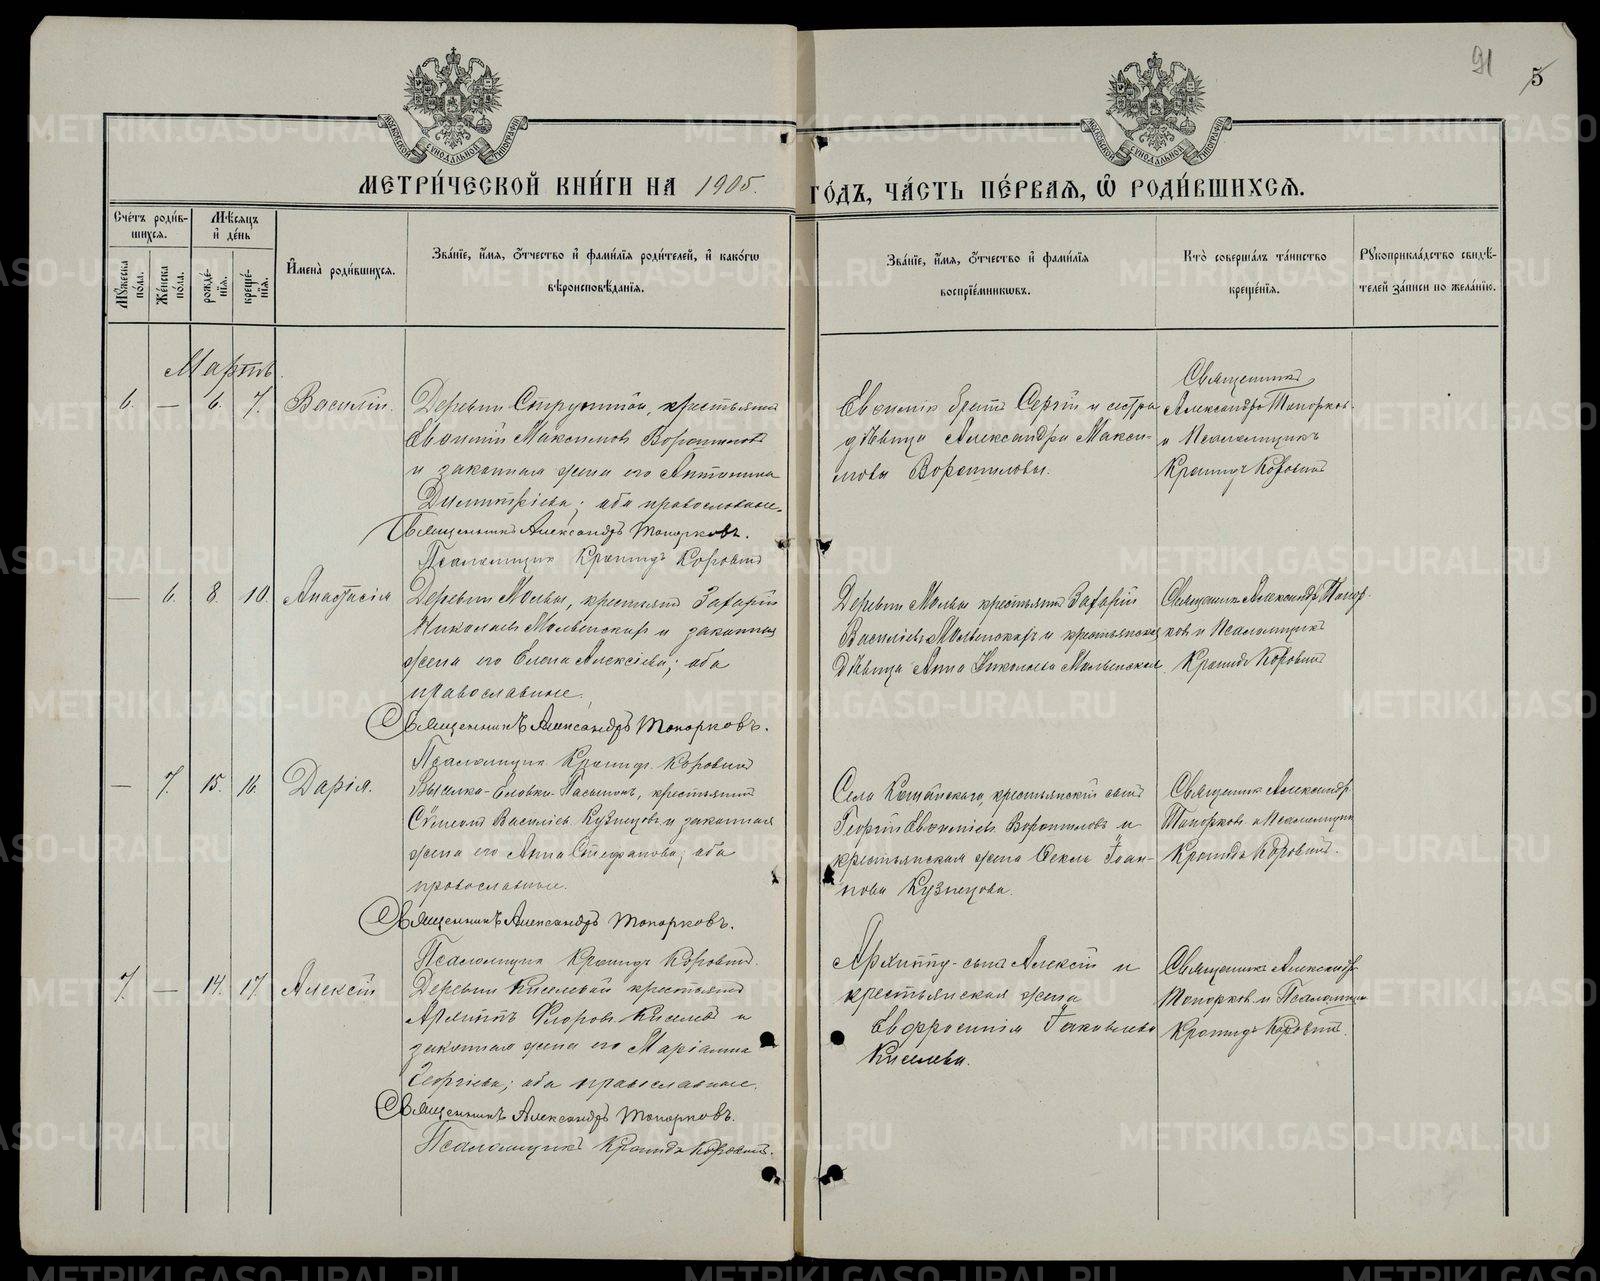 91
5
МОСКОВСКОЙ СѴНОДАЛЬНОЙ ТИПОГРАФІИ
МОСКОВСКОЙ СѴНОДАЛЬНОЙ ТИПОГРАФІИ
МЕТРИ́ЧЕСКОЙ КНИ́ГИ НА 1905. ГО́ДЪ, ЧА́СТЬ ПЕ́РВАѦ, Ѡ҆ РОДИ́ВШИХСѦ.
Сче́тъ роди́в-
шихсѧ.
Мꙋ́жеска по́ла.
Же́нска по́ла.
Мѣ́сѧцъ
и҆ де́нь
рожде́-
нїѧ.
креще́-
нїѧ.
И҆мена̀ роди́вшихсѧ.
Зва́нїе, и҆́мѧ, ѻ҆́тчество и҆ фами́лїѧ роди́телей, и҆ како́гѡ
вѣроисповѣ́данїѧ.
Зва́нїе, и҆́мѧ, ѻ҆́тчество и҆ фами́лїѧ
воспрїе́мникѡвъ.
Кто̀ соверша́лъ та́инство
креще́нїѧ.
Рꙋкоприкла́дство свидѣ́-
телей за́писи по жела́нїю.
Мартъ.
6. — 6. 7. Василій.
Деревни крестьянинъ
Евѳимій Максимовъ Воротиловъ
и законная жена его Антонина
Димитріева; оба православные.
Священникъ Александръ Топорковъ.
Псаломщикъ Кронидъ Коровинъ
Евѳимія братъ Сергій и сестра
дѣвица Александра Макси-
мовы Воротиловы.
Священникъ
Александръ Топорковъ
и Псаломщикъ
Кронидъ Коровинъ
— 6. 8. 10. Анастасія
Деревни Мольвы, крестьянинъ Захарій
Николаевъ и законная
жена его Елена Алексіева; оба
православные.
Священникъ Александръ Топорковъ.
Псаломщикъ Кронидъ Коровинъ
Деревни Мольвы крестьянинъ Захарій
Василіевъ и крестьянская
дѣвица Анна Николаева
Священникъ Александръ Топор-
ковъ и Псаломщикъ
Кронидъ Коровинъ
— 7. 15. 16. Дарія.
Выселка крестьянинъ
Симеонъ Василіевъ Кузнецовъ и законная
жена его Анна Стефанова; оба
православные.
Священникъ Александръ Топорковъ.
Псаломщикъ Кронидъ Коровинъ.
Села крестьянскій сынъ
Георгій Евѳиміевъ Воротиловъ и
крестьянская жена Ѳекла Іоан-
нова Кузнецова.
Священникъ Александръ
Топорковъ и Псаломщикъ
Кронидъ Коровинъ.
7. — 14. 17. Алексій
Деревни Киселевой крестьянинъ
Архиппъ Флоровъ Киселевъ и
законная жена его Маріамна
Георгіева; оба православные.
Священникъ Александръ Топорковъ.
Псаломщикъ Кронидъ Коровинъ.
сынъ Алексій и
крестьянская жена
Евфросинія Іаковлева
Киселева.
Священникъ Александръ
Топорковъ и Псаломщикъ
Кронидъ Коровинъ.
METRIKI.GASO-URAL.RU